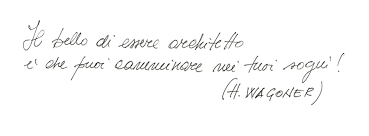 Il bello di essere architetto
è che puoi camminare nei tuoi sogni!
(H. WAGONER)